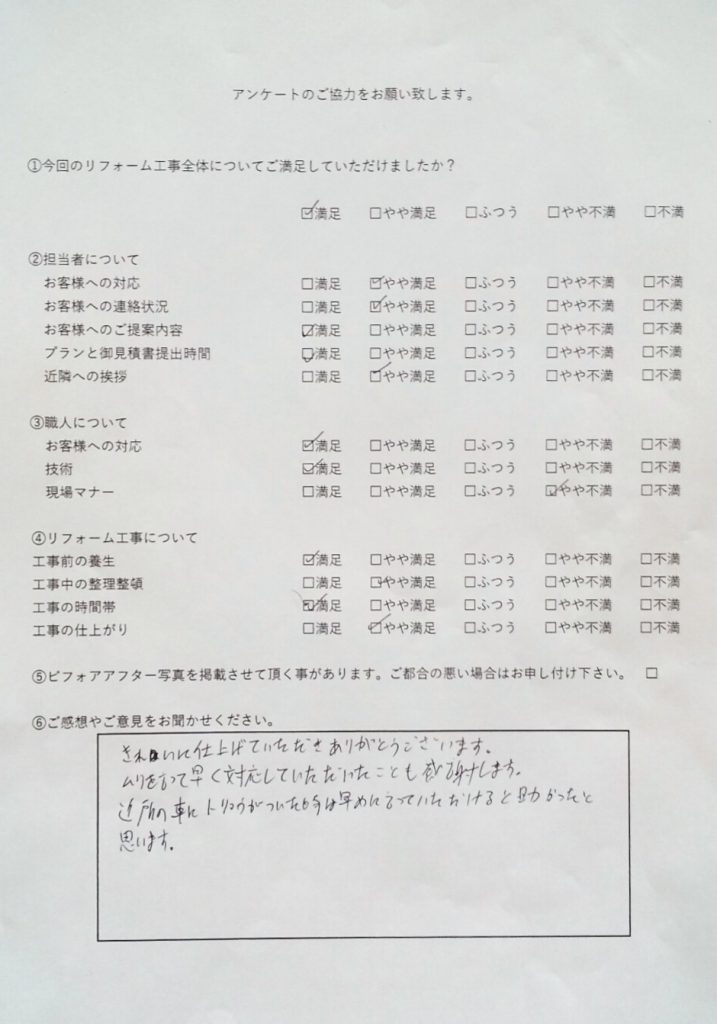 アンケートのご協力をお願い致します。
①今回のリフォーム工事全体についてご満足していただけましたか？
☑満足 □やや満足 □ふつう □やや不満 □不満
②担当者について
お客様への対応 □満足 ☑やや満足 □ふつう □やや不満 □不満
お客様への連絡状況 □満足 ☑やや満足 □ふつう □やや不満 □不満
お客様へのご提案内容 ☑満足 □やや満足 □ふつう □やや不満 □不満
プランと御見積書提出時間 ☑満足 □やや満足 □ふつう □やや不満 □不満
近隣への挨拶 □満足 ☑やや満足 □ふつう □やや不満 □不満
③職人について
お客様への対応 ☑満足 □やや満足 □ふつう □やや不満 □不満
技術 ☑満足 □やや満足 □ふつう □やや不満 □不満
現場マナー □満足 □やや満足 □ふつう ☑やや不満 □不満
④リフォーム工事について
工事前の養生 ☑満足 □やや満足 □ふつう □やや不満 □不満
工事中の整理整頓 □満足 ☑やや満足 □ふつう □やや不満 □不満
工事の時間帯 ☑満足 □やや満足 □ふつう □やや不満 □不満
工事の仕上がり □満足 ☑やや満足 □ふつう □やや不満 □不満
⑤ビフォアアフター写真を掲載させて頂く事があります。ご都合の悪い場合はお申し付け下さい。 □
⑥ご感想やご意見をお聞かせください。
きれいに仕上げていただきありがとうございます。
ムリをいって早く対応していただいたことも感謝します。
近所の車にトリョウがついた時は早めに言っていただけると助かったと
思います。